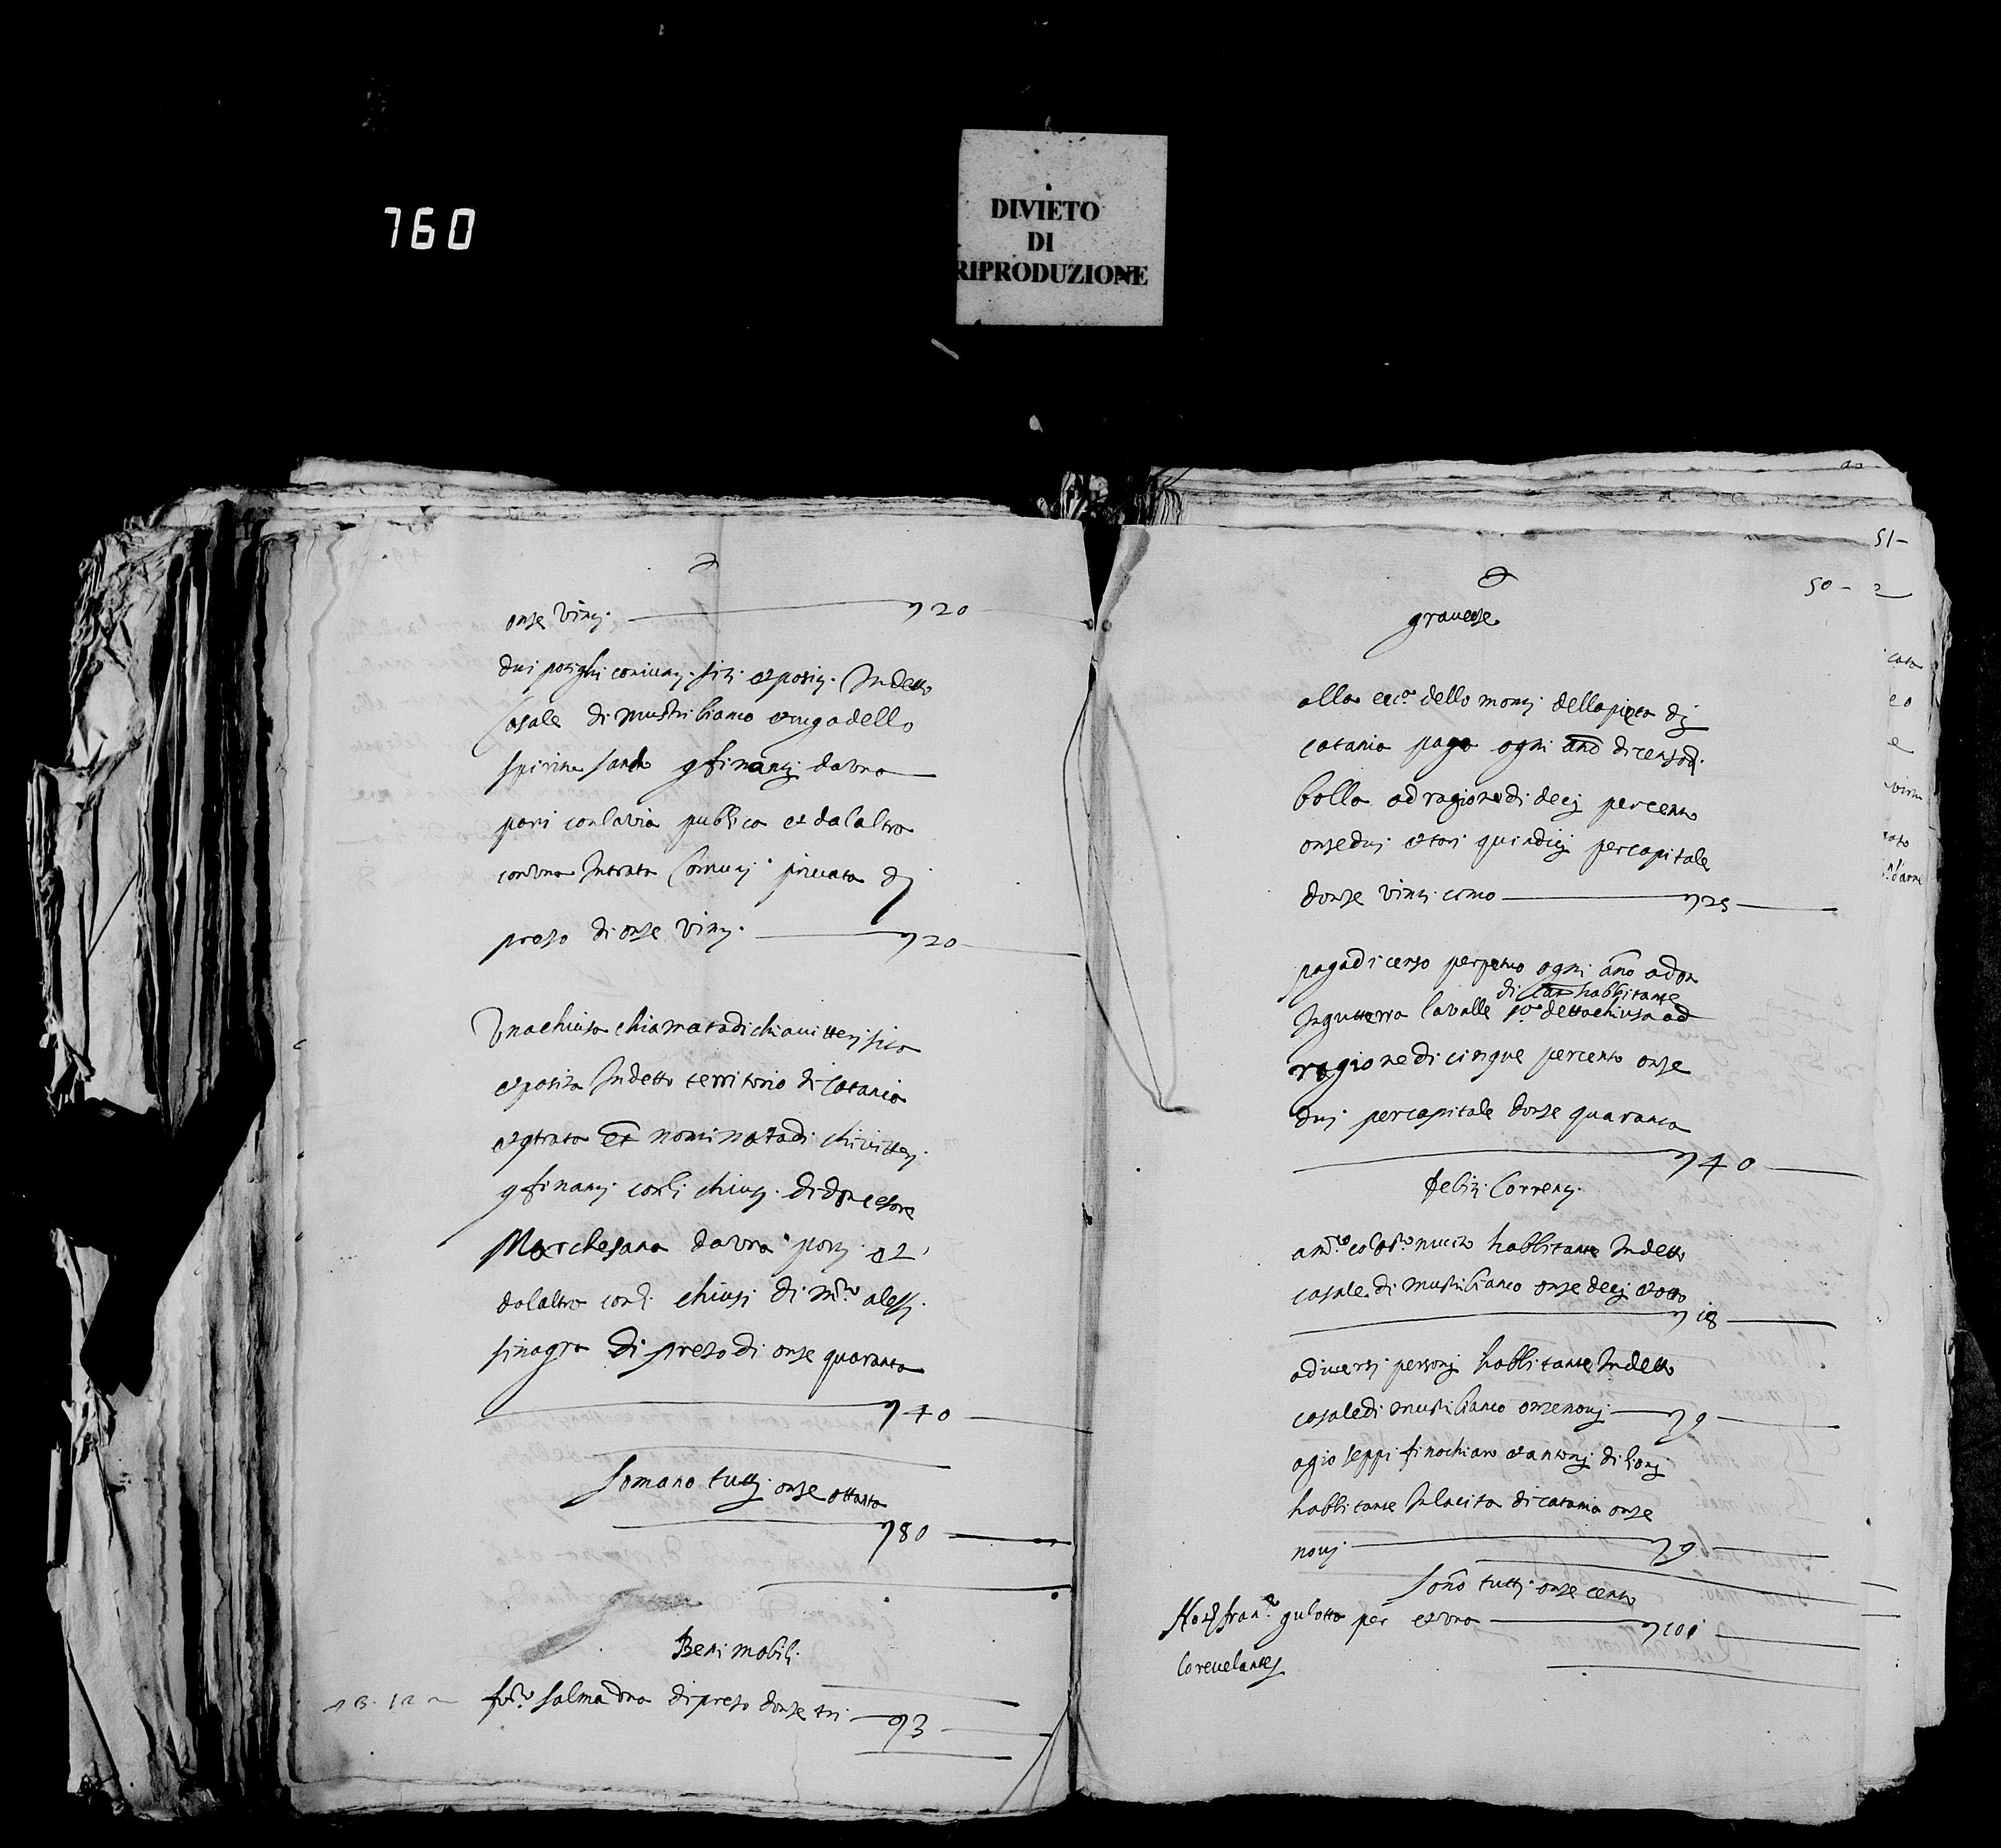 760
DIVIETO
DI
RIPRODUZIONE
onse vinti 20
dui potighi coniunti siti et positi In detto
Casale di mustribianco et ruga dello
spirito santo gfinanti da una
parti con la via publica et dal altra
con una Intrata Comuni privata di
prezo di onse vinti 20
Una chiusa chiamata di chiavitteri sita
et posita In detto territorio di Catania
et gtrata et nominata di chivitteri
gfinanti con li chiusi di don cesare
Marchesana da una parti et
dal altra con li chiusi di m.ro alessi
sinagra di prezo di onse quaranta
40
Somano tutti onse ottanta
80
Beni mobili
salma una di prezo donse tri 3
51-
50 - 2
gravezze
alla dello monti della pieta di
catania paga ogni anno di censo di
bolla ad ragione di deci per cento
onse dui et tari quindici per capitale
donse vinti cinco 25
paga di censo perpetuo ogni anno a don
di habbitante
Inguterra lavalle detta chiusa ad
ragione di cinque per cento onse
dui per capitale donse quaranta
40
Debiti Correnti
nucito habbitante In detto
casale di mustribianco onse deci et otto
18
a diversi personi habbitante In detto
casale di mustribianco onse novi 9
a gioseppi finochiaro et antoni di lioni
habbitante In la cita di catania onse
novi 9
Sono tutti onse cento
gulotta per et una 101
lo revelante